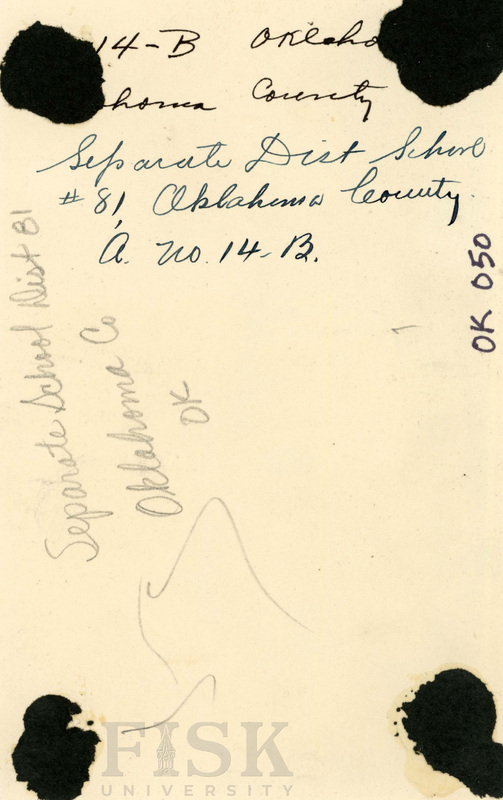 14-B Oklaho
homa County
Separate Dist School
#81, Oklahoma County
A. no. 14-B.
Separate School Dist 81
Oklahoma Co
OK
OK 050
FISK
UNIVERSITY